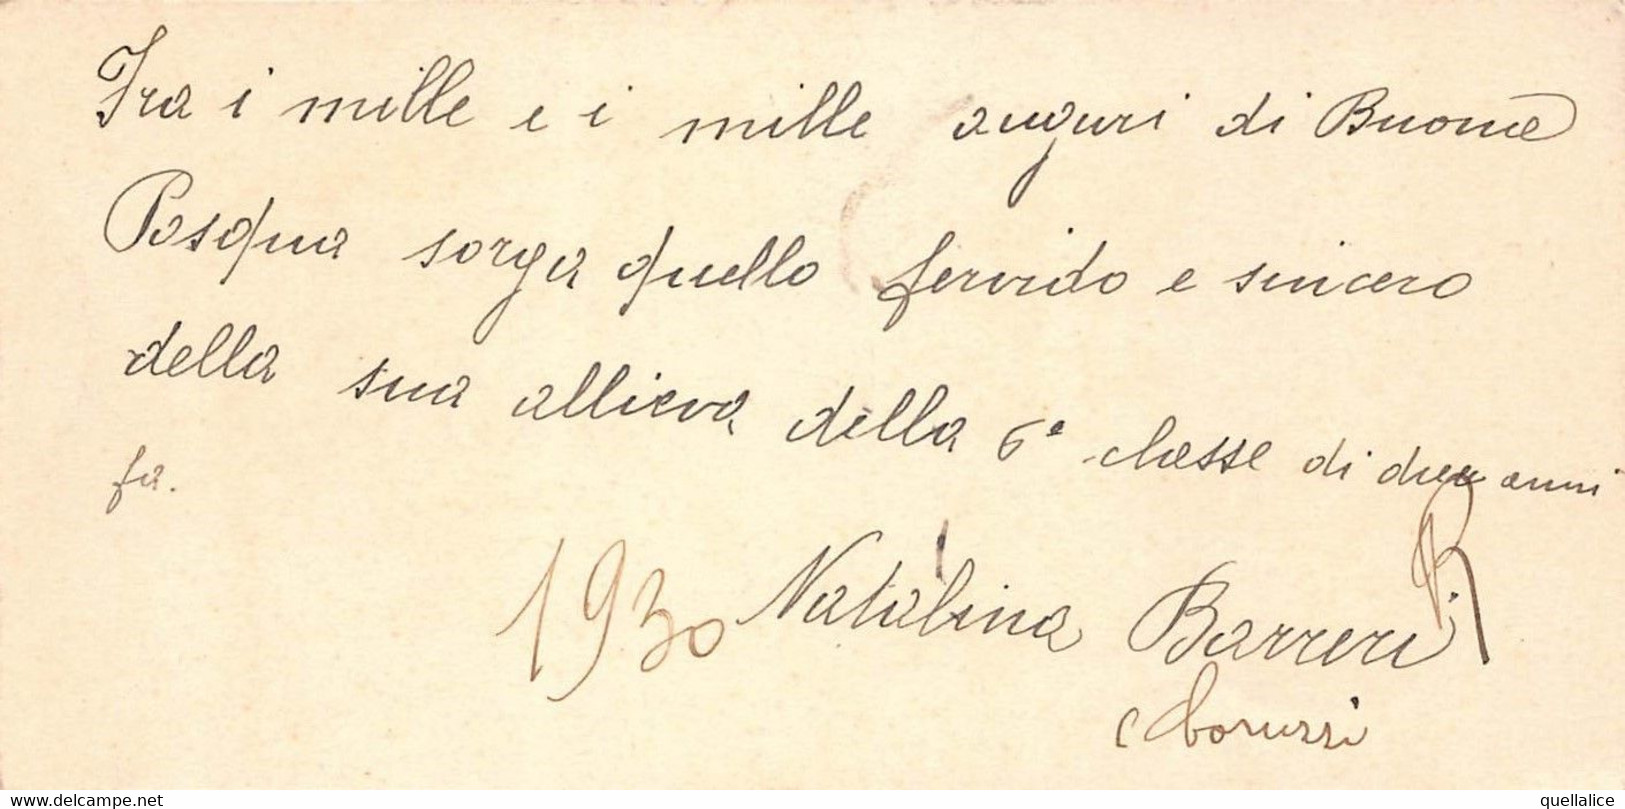 Fra i mille e i mille auguri di Buona
Pasqua sorga quello fervido e sincero
della sua allieva della 6ª classe di due anni
fa.
1930 Natalina Barreri
delcampe.net
quellalice